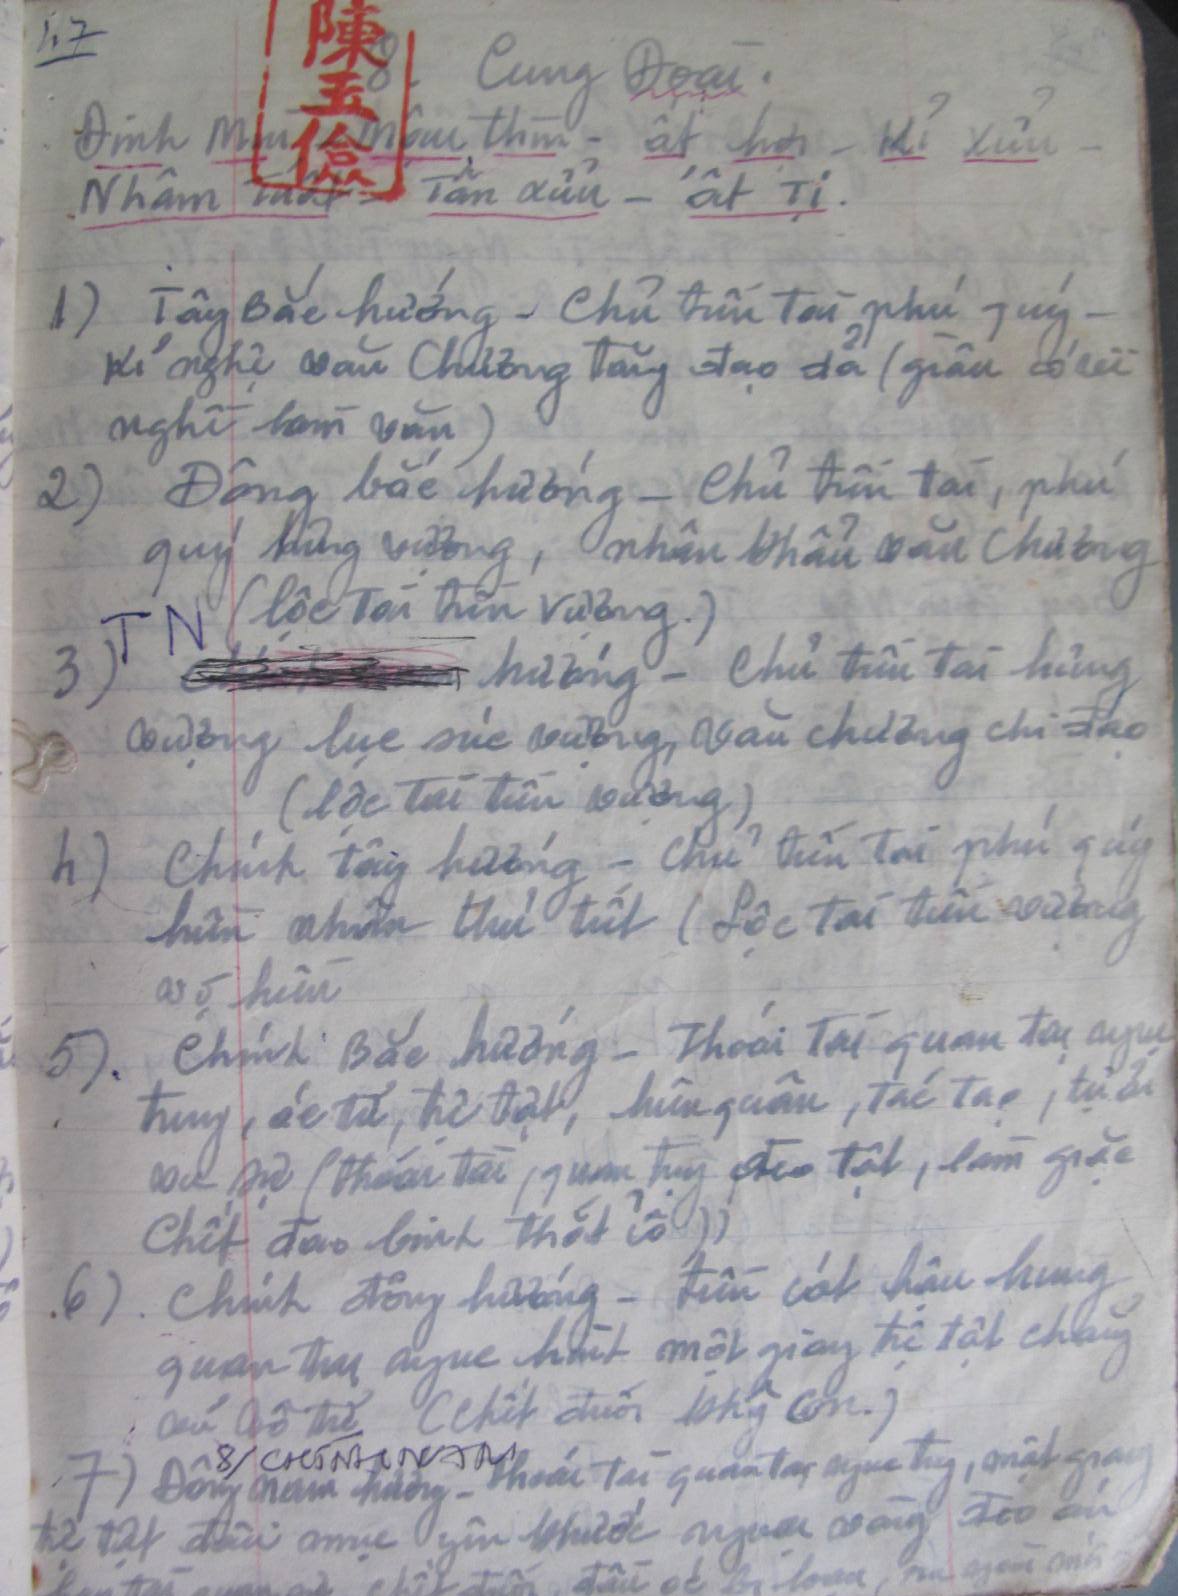 47
陳玉儉
8. Cung Đoài.
Đinh Mùi - Mậu thìn - ất hợi - Kỉ xửu -
Nhâm Tuất - Tân xửu - ất Tị.
1) Tây Bắc hướng - Chủ tiến Tài phú quý -
Kỉ nghệ văn Chương tăng đạo đả (giàu có
nghề làm văn)
2) Đông bắc hướng - Chủ tiến tài, phú
quý hưng vượng, nhân khẩu văn Chương
(lộc Tài tiến vượng.)
TN
3) hướng - Chủ tiến tài hưng
vượng lục súc vượng, văn chương chi đạo
(lộc tài tiến vượng)
4) Chính tây hướng - Chủ tiến tài phú quý
hôn nhân thú tốt (Lộc Tài tiến vượng
vô hôn
5). Chính Bắc hướng - Thoái Tài quan tụng ngục
tung, ác tử, tệ tật, hôn quân, tác tạo, tự ải
(thoái tài, quan tụng đeo tật, làm giặc
Chết đao binh thắt cổ))
6). Chính đông hướng - tiền cát hậu hung
quan tụng ngục hình một giang tệ tật chẳng
cứ vô thê (Chết đuối không con.)
8/ CHÍNH NAM
7) Đông nam hướng - thoái Tài quan tụng ngục tụng, một giang
tệ tật đầu mục yên khước người vàng đeo án
quan sự chết đuối, đầu óc bị loạn,